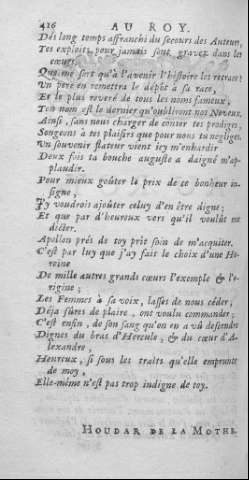 426 AU ROY.
Dès long temps affranchi du secours des Auteurs,
Tes exploits pour jamais sont gravez dans les
cœurs.
Que me sert qu'à l'avenir l'histoire les retrace?
Un pere en remettra le dépôt à sa race,
Et le plus reveré de tous les noms fameux,
Ton nom est le dernier qu'oubliront nos Neveux.
Ainsi, sans nous charger de conter tes prodiges,
Songeons à tes plaisirs que pour nous tu negliges,
Un souvenir flateur vient icy m'enhardir
Deux fois ta bouche auguste a daigné m'ap-
plaudir.
Pour mieux goûter le prix de ce bonheur in-
signe,
J'y voudrois ajoûter celuy d'en être digne;
Et que par d'heureux vers qu'il voulût me
dicter.
Apollon prés de toy prît soin de m'acquiter.
C'est par luy que j'ay fait le choix d'une He-
roïne
De mille autres grands cœurs l'exemple & l'o-
rigine;
Les Femmes à sa voix, lasses de nous céder,
Déja sûres de plaire, ont voulu commander;
C'est enfin, de son sang qu'on en a vû descendre
Dignes du bras d'Hercule, & du cœur d'A-
lexandre,
Heureux, si sous les traits qu'elle emprunte
de moy,
Elle-même n'est pas trop indigne de toy.
HOUDAR DE LA MOTHE.